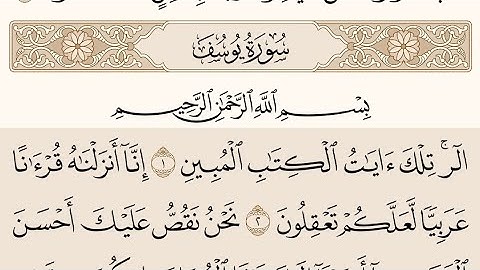 سُورَةُ يُوسُفَ
بِسْمِ ٱللَّهِ ٱلرَّحْمَٰنِ ٱلرَّحِيمِ
الٓرۚ تِلْكَ ءَايَٰتُ ٱلْكِتَٰبِ ٱلْمُبِينِ ١ إِنَّآ أَنزَلْنَٰهُ قُرْءَٰنًا
عَرَبِيًّا لَّعَلَّكُمْ تَعْقِلُونَ ٢ نَحْنُ نَقُصُّ عَلَيْكَ أَحْسَنَ